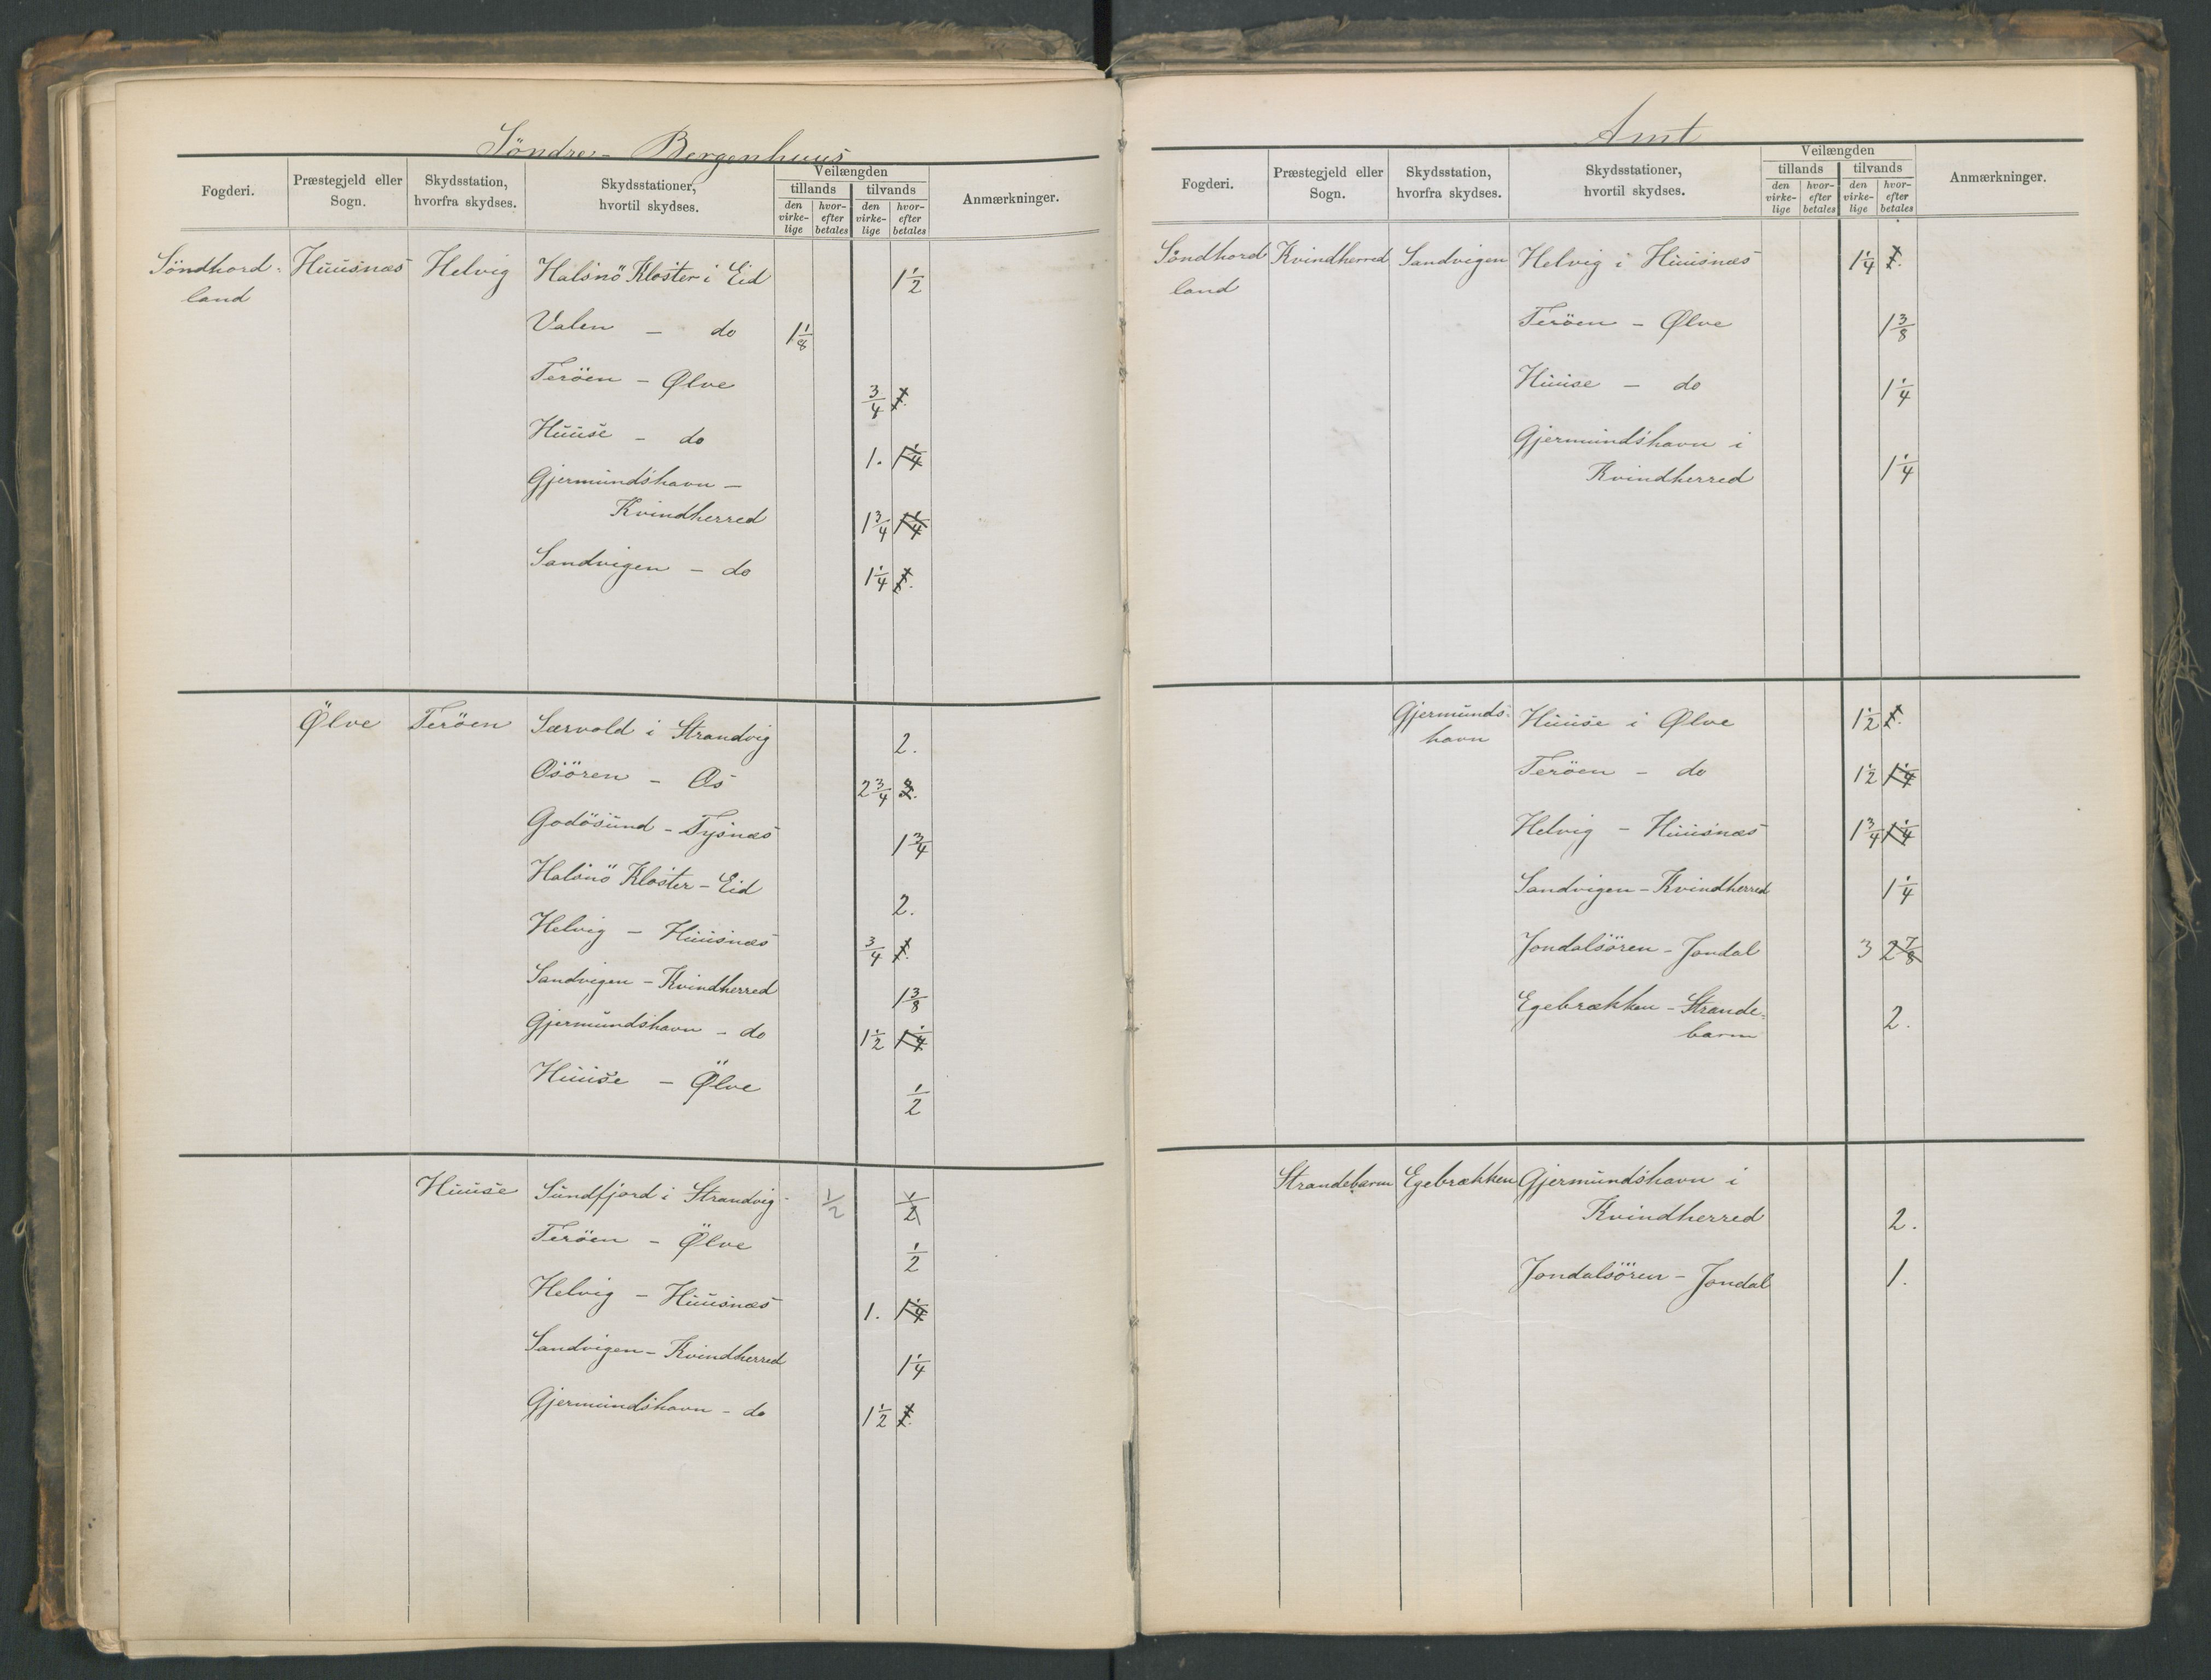 Söndre- Bergenhuus
Fogderi. Præstegjeld eller Sogn. Skydsstation, hvorfra skydses. Skydsstationer, hvortil skydses. Veilængden Anmærkninger.
tillands tilvands
den virke- lige hvor- efter betales den virke- lige hvor- efter betales
Söndhord- Huusnæs Helvig Halsnö Kloster i Eid 1 1/2
land
Valen - do 1 1/8
Teröen - Ølve 3/4 1.
Huuse - do 1. 1 1/4
Gjermundshavn -
Kvindherred 1 3/4 1 1/4
Sandvigen - do 1 1/4 1.
Ölve Teröen Særvold i Strandvig 2.
Osören - Os 2 3/4
Godösund - Tysnæs 1 3/4
Halsnö Kloster - Eid 2.
Helvig - Huusnæs 3/4 1.
Sandvigen - Kvindherred 1 3/8
Gjermundshavn - do 1 1/2 1 1/4
Huuse - Ölve 1/2
Huuse Sundfjord i Strandvig 1/2 1/2
Teröen - Ölve 1/2
Helvig - Huusnæs 1. 1 1/4
Sandvigen - Kvindherred 1 1/4
Gjermundshavn - do 1 1/2 1.
Amt
Fogderi. Præstegjeld eller Sogn. Skydsstation, hvorfra skydses. Skydsstationer, hvortil skydses. Veilængden Anmærkninger.
tillands tilvands
den virke- lige hvor- efter betales den virke- lige hvor- efter betales
Söndhord Kvindherred Sandvigen Helvig i Huusnæs 1 1/4 1.
land
Teröen - Ølve 1 3/8
Huuse - do 1 1/4
Gjermundshavn i
Kvindherred 1 1/4
Gjermunds- Huuse i Ølve 1 1/2 1.
havn
Teröen - do 1 1/2 1 1/4
Helvig - Huusnæs 1 3/4 1 1/4
Sandvigen - Kvindherred 1 1/4
Jondalsören - Jondal 3 2 7/8
Egebrækken - Strande-
barm 2.
Strandebarm Egebrækken Gjermundshavn i
Kvindherred 2.
Jondalsören - Jondal 1.